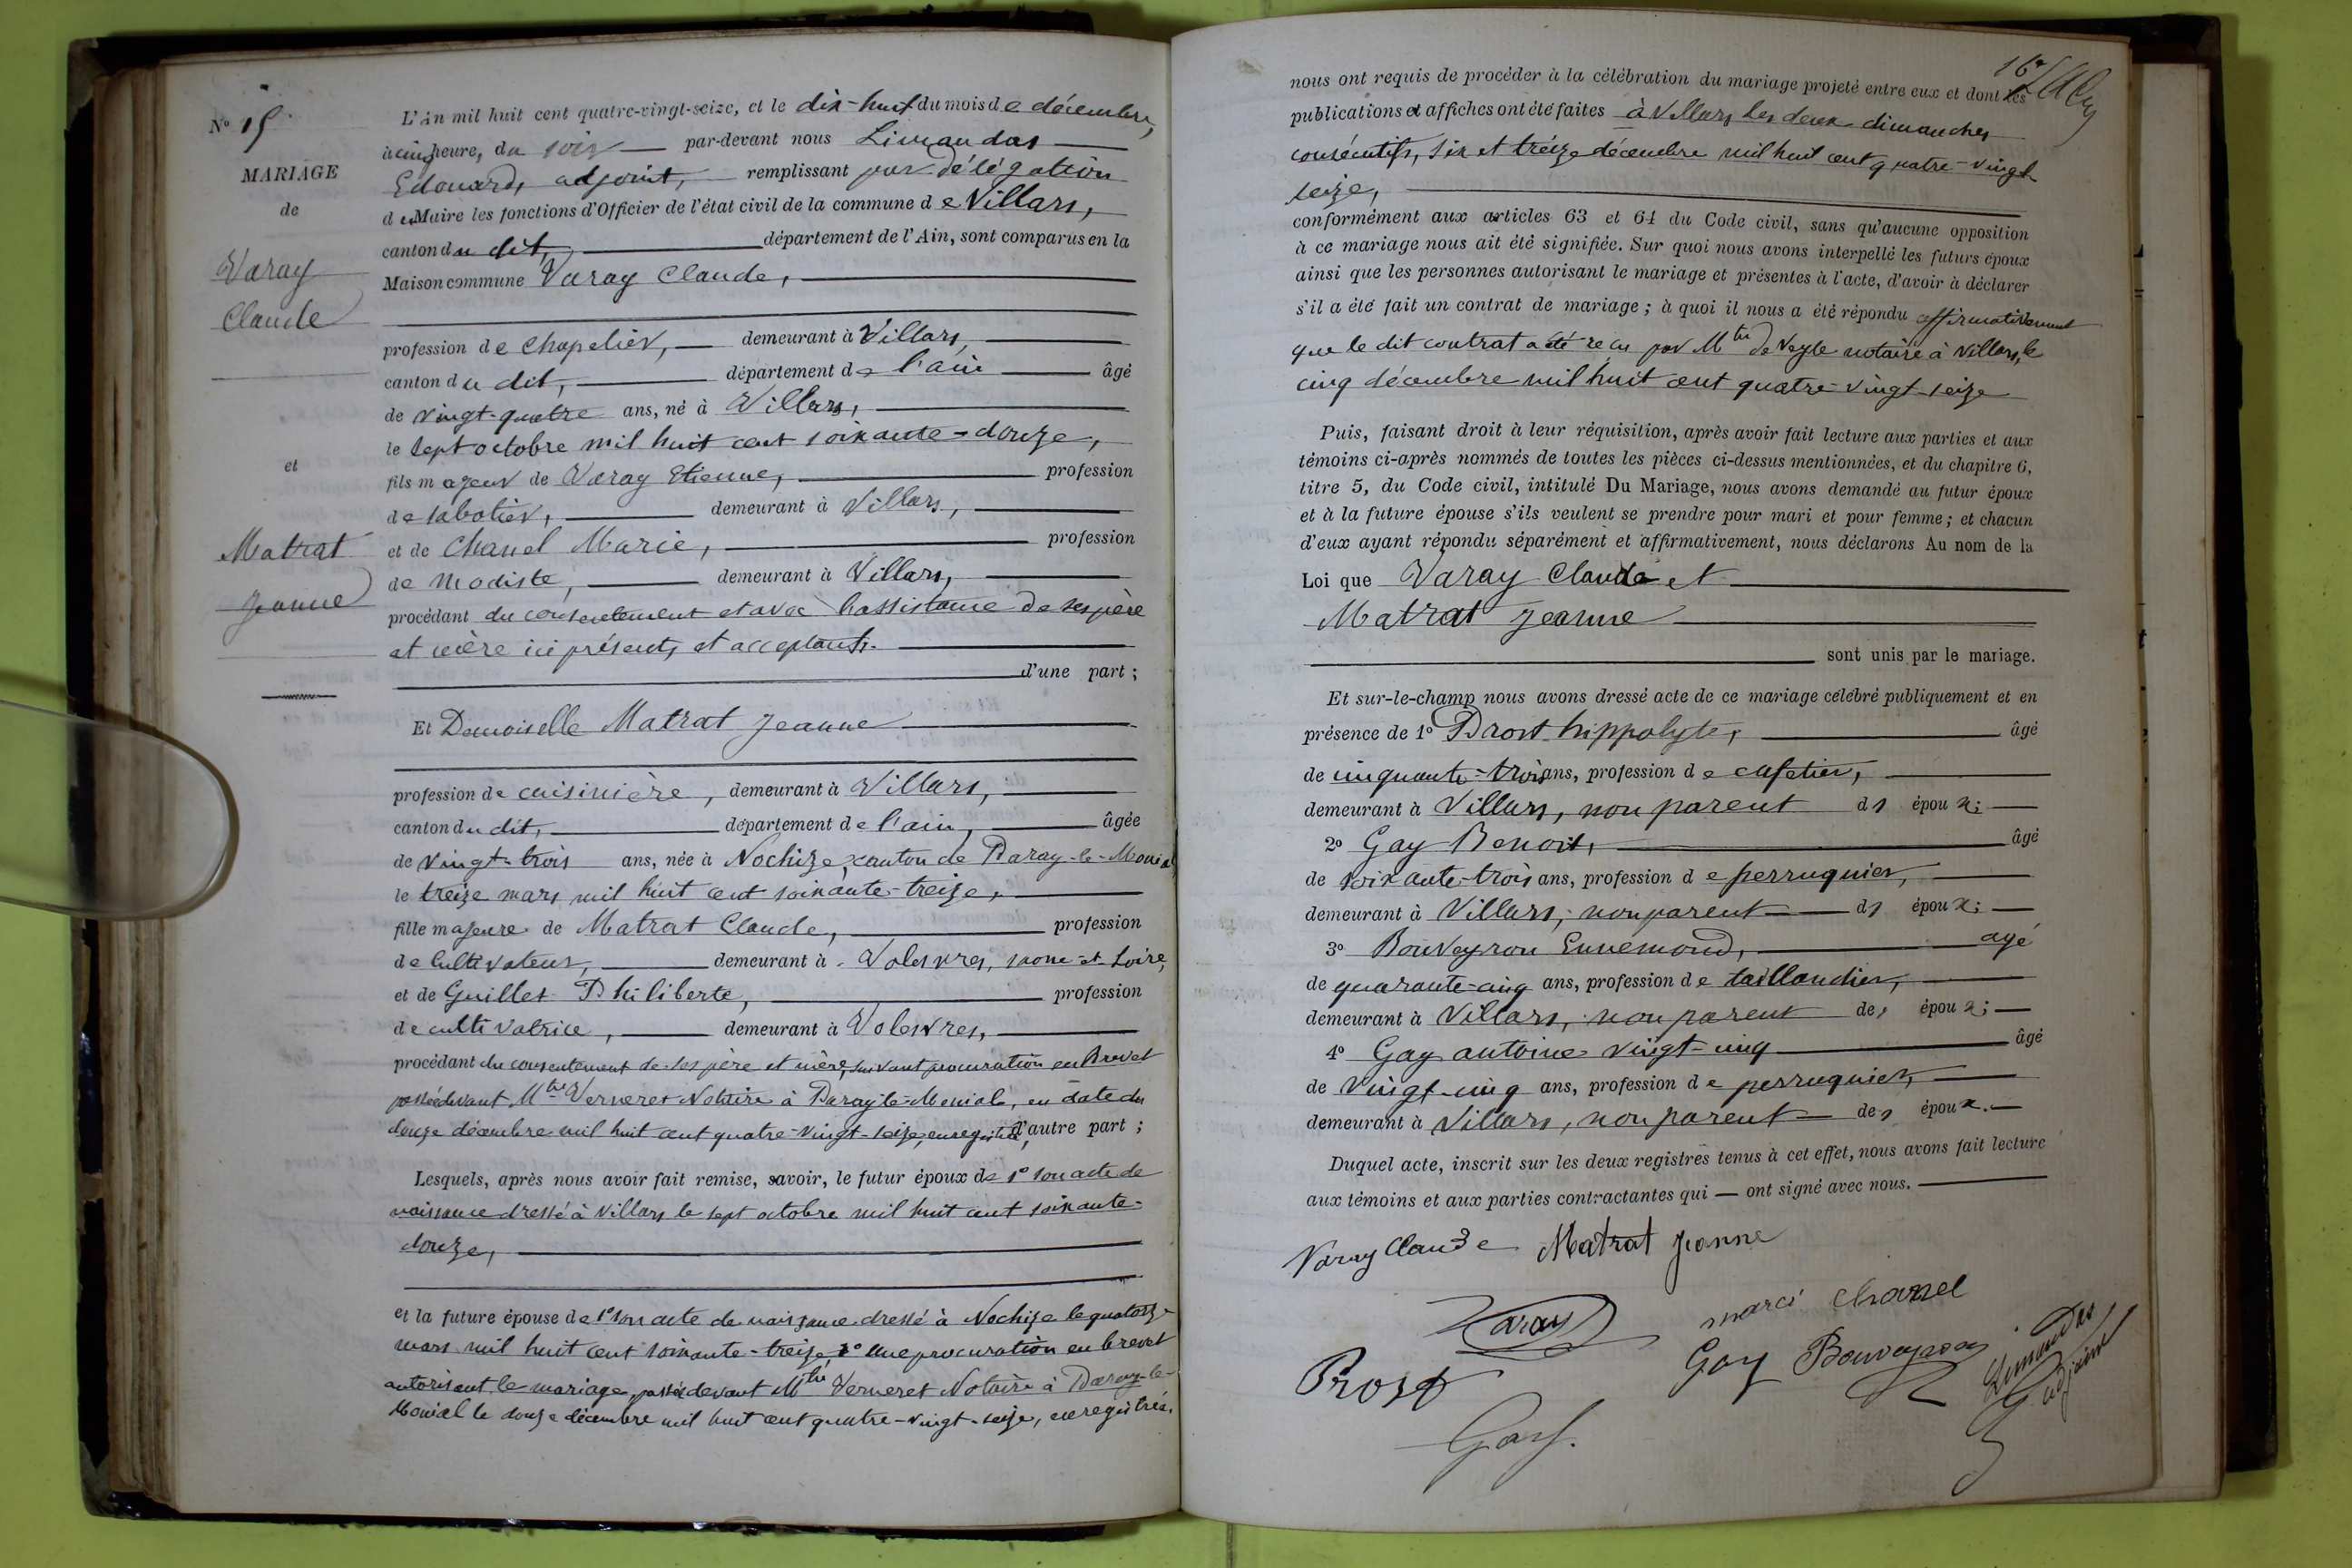 N° 15
MARIAGE
de
Varay
Claude
et
Matrat
Jeanne
L'an mil huit cent quatre-vingt-seize, et le dix-huit du mois de décembre,
à cinq heure, du soir par-devant nous Limandas
Edouard, adjoint, remplissant par délégation
du Maire les fonctions d'Officier de l'état civil de la commune de Villars,
canton du dit, département de l'Ain, sont comparus en la
Maison commune Varay Claude,
profession de chapelier, demeurant à Villars,
canton du dit, département de l'ain âgé
de vingt-quatre ans, né à Villars,
le sept octobre mil huit cent soixante-douze,
fils majeur de Varay Etienne, profession
de sabotier, demeurant à Villars,
et de Chanel Marie, profession
de modiste, demeurant à Villars,
procédant du consentement et avec l'assistance de ses père
et mère ici présents et acceptants.
d'une part ;
Et Demoiselle Matrat Jeanne
profession de cuisinière, demeurant à Villars,
canton du dit, département de l'ain, âgée
de vingt-trois ans, née à Nochize, canton de Paray-le-Monial
le treize mars mil huit cent soixante-treize,
fille majeure de Matrat Claude, profession
de cultivateur, demeurant à Volesvres, saone-et-Loire,
et de Guillet Philiberte, profession
de cultivatrice, demeurant à Volesvres,
procédant du consentement de ses père et mère, suivant procuration en Brevet
passée devant Mtre Verneret Notaire à Paray-le-Monial, en date du
douze décembre mil huit cent quatre-vingt-seize, enregistrée, d'autre part ;
Lesquels, après nous avoir fait remise, savoir, le futur époux de 1° son acte de
naissance dressé à Villars le sept octobre mil huit cent soixante-
douze,
et la future épouse de 1° son acte de naissance dressé à Nochize le quatorze
mars mil huit cent soixante-treize, 2° une procuration en brevet
autorisant le mariage, passée devant Mtre Verneret Notaire à Paray-le-
Monial le douze décembre mil huit cent quatre-vingt-seize, enregistrée.
16
nous ont requis de procéder à la célébration du mariage projeté entre eux et dont les
publications et affiches ont été faites à Villars les deux dimanches
consécutifs, six et treize décembre mil huit cent quatre-vingt
seize,
conformément aux articles 63 et 64 du Code civil, sans qu'aucune opposition
à ce mariage nous ait été signifiée. Sur quoi nous avons interpellé les futurs époux
ainsi que les personnes autorisant le mariage et présentes à l'acte, d'avoir à déclarer
s'il a été fait un contrat de mariage ; à quoi il nous a été répondu affirmativement
que le dit contrat a été reçu par Mtre de Veyle notaire à Villars, le
cinq décembre mil huit cent quatre-vingt-seize
Puis, faisant droit à leur réquisition, après avoir fait lecture aux parties et aux
témoins ci-après nommés de toutes les pièces ci-dessus mentionnées, et du chapitre 6,
titre 5, du Code civil, intitulé Du Mariage, nous avons demandé au futur époux
et à la future épouse s'ils veulent se prendre pour mari et pour femme ; et chacun
d'eux ayant répondu séparément et affirmativement, nous déclarons Au nom de la
Loi que Varay Claude et
Matrat Jeanne
sont unis par le mariage.
Et sur-le-champ nous avons dressé acte de ce mariage célébré publiquement et en
présence de 1° Prost hippolyte, âgé
de cinquante-trois ans, profession de cafetier,
demeurant à Villars, non parent ds époux ;
2° Gay Benoit, âgé
de soixante-trois ans, profession de perruquier,
demeurant à Villars, non parent ds époux ;
3° Bouveyron Ennemond, agé
de quarante-cinq ans, profession de taillandier,
demeurant à Villars, non parent des époux ;
4° Gay antoine vingt-cinq âgé
de vingt-cinq ans, profession de perruquier,
demeurant à Villars, non parent des époux.
Duquel acte, inscrit sur les deux registres tenus à cet effet, nous avons fait lecture
aux témoins et aux parties contractantes qui — ont signé avec nous.
Varay Claude Matrat Jeanne
Varay marci chanel
Prost Gay Bouveyron Limandas
adjoint
Gay